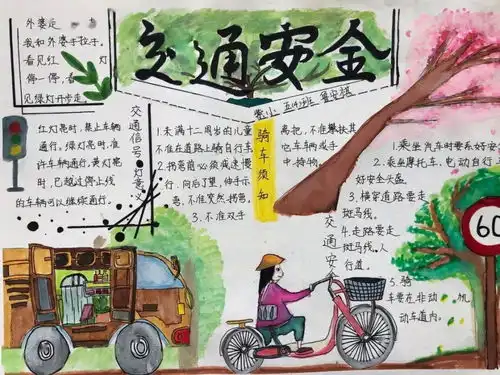 交通安全
外婆是
我和外婆手拉手。
看见红灯
停一停,看
见绿灯开步走。
交通信号灯意义
红灯亮时,禁止车辆
通行。绿灯亮时,准
许车辆通行。黄灯亮
时,已越过停止线
的车辆可以继续通行。
骑车须知
1.未满十二周岁的儿童
不准在道路上骑自行车
2.拐弯前必须减速慢
行、向后了望,伸手示
意,不准突然拐弯。
3.不准双手
离把,不准攀扶其
它车辆或手
中持物。
交通安全
1.乘坐汽车时要系好安
2.乘坐摩托车、电动自行
好安全头盔
3.横穿道路要走
斑马线。
4.走路要走
斑马线。人
行道。
5.骑
车要在非动机
动车道内。
60